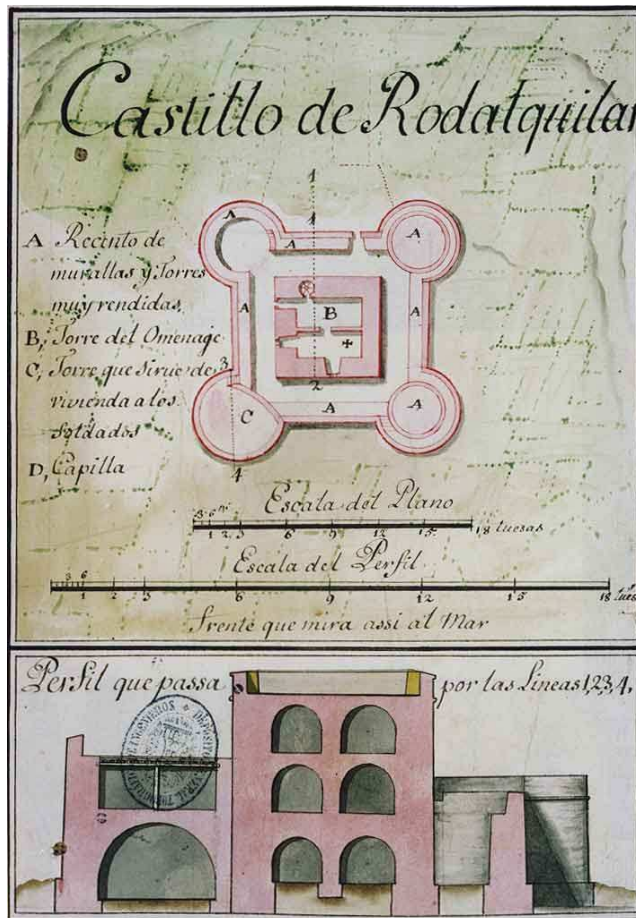 Castillo de Rodalquilar
A Recinto de
murallas y Torres
muy rendidas
B, Torre del Omenage
C, Torre que sirue de
vivienda a los
Soldados
D, Capilla
1
1
A
A
A
A
A
B
3
2
A
C
A
4
Escala del Plano
3 6
1 2 3 6 9 12 15 18 tuesas
Escala del Perfil
3 6
1 2 3 6 9 12 15 18 tues
frente que mira assi al Mar
Perfil que passa por las Lineas 1,2,3,4,
DE INGENIEROS